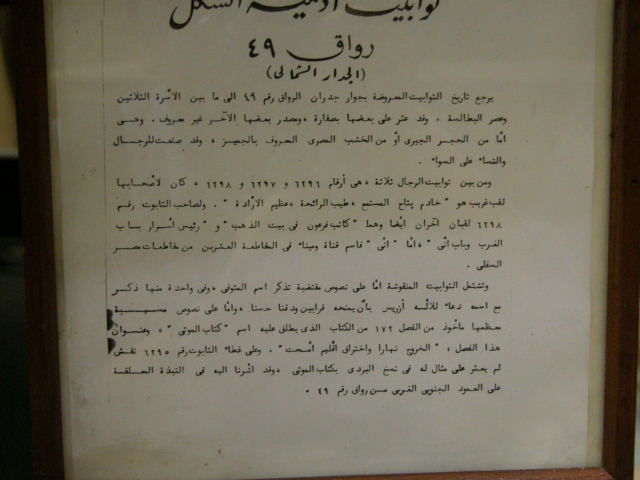 توابيت آدمية الشكل
رواق ٤٩
(الجدار الشمالى)
يرجع تاريخ التوابيت المعروضة بجوار جدران الرواق رقم ٤٩ الى ما بين الأسرة الثلاثين
وعصر البطالسة . وقد عثر على بعضها بصقارة ، ومصدر بعضها الآخر غير معروف . وهى
امّا من الحجر الجيرى أو من الخشب المصرى المعروف بالجميز ، وقد صنعت للرجال
والنساء على السواء .
ومن بين توابيت الرجال ثلاثة ، هى أرقام ٦٢٩٦ و ٦٢٩٧ و ٦٢٩٨ ، كان لأصحابها
لقب غريب هو " خادم پتاح المستمع ، طيب الرائحة ، عظيم الارادة " . ولصاحب التابوت رقم
٦٢٩٨ لقبان آخران أيضا وهما " كاتب فرعون فى بيت الذهب " و " رئيس أسرار باب
الغرب وباب انّى " ، امّا " انّى " فاسم قناة وميناء فى المقاطعة العشرين من مقاطعات مصر
السفلى .
وتشتمل التوابيت المنقوشة امّا على نصوص مقتضبة تذكر اسم المتوفى ، وفى واحدة منها ذكر
مع اسمه دعاء للاله أزريس بأن يمنحه قرابين ودفنا حسنا ، وامّا على نصوص مسهبة
معظمها مأخوذ من الفصل ١٧٢ من الكتاب الذى يطلق عليه اسم " كتاب الموتى " ، وعنوان
هذا الفصل ، " الخروج نهارا واختراق اقليم أمحت " . وعلى غطاء التابوت رقم ٦٢٩٥ نقش
لم يعثر على مثال له فى نسخ البردى بكتاب الموتى ، وقد أشرنا اليه فى النبذة المعلقة
على العمود الجنوبى الغربى من رواق رقم ٤٩ .